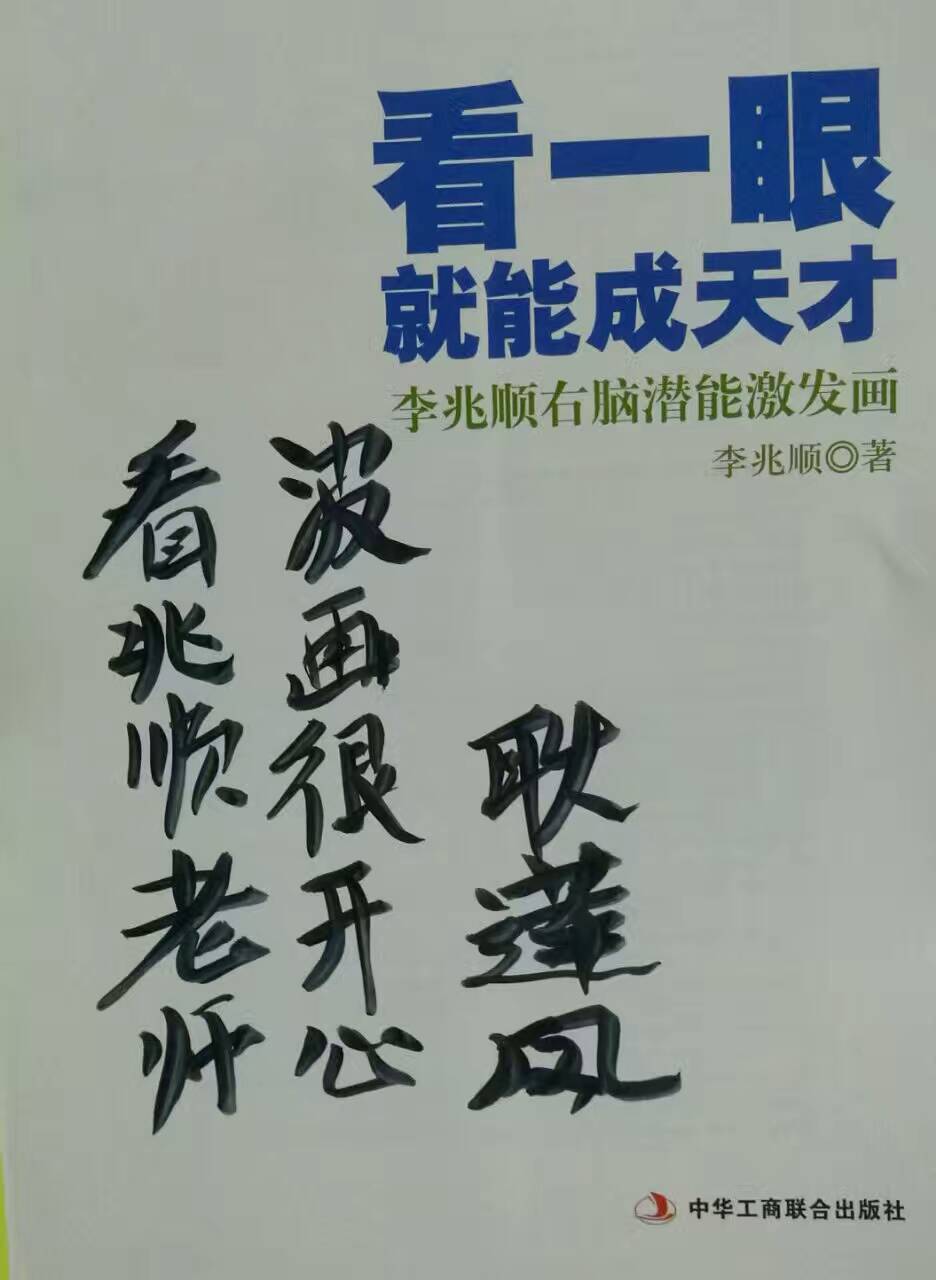 看一眼
就能成天才
李兆顺右脑潜能激发画
李兆顺◎著
看兆顺老师
波画很开心
耿莲凤
中华工商联合出版社